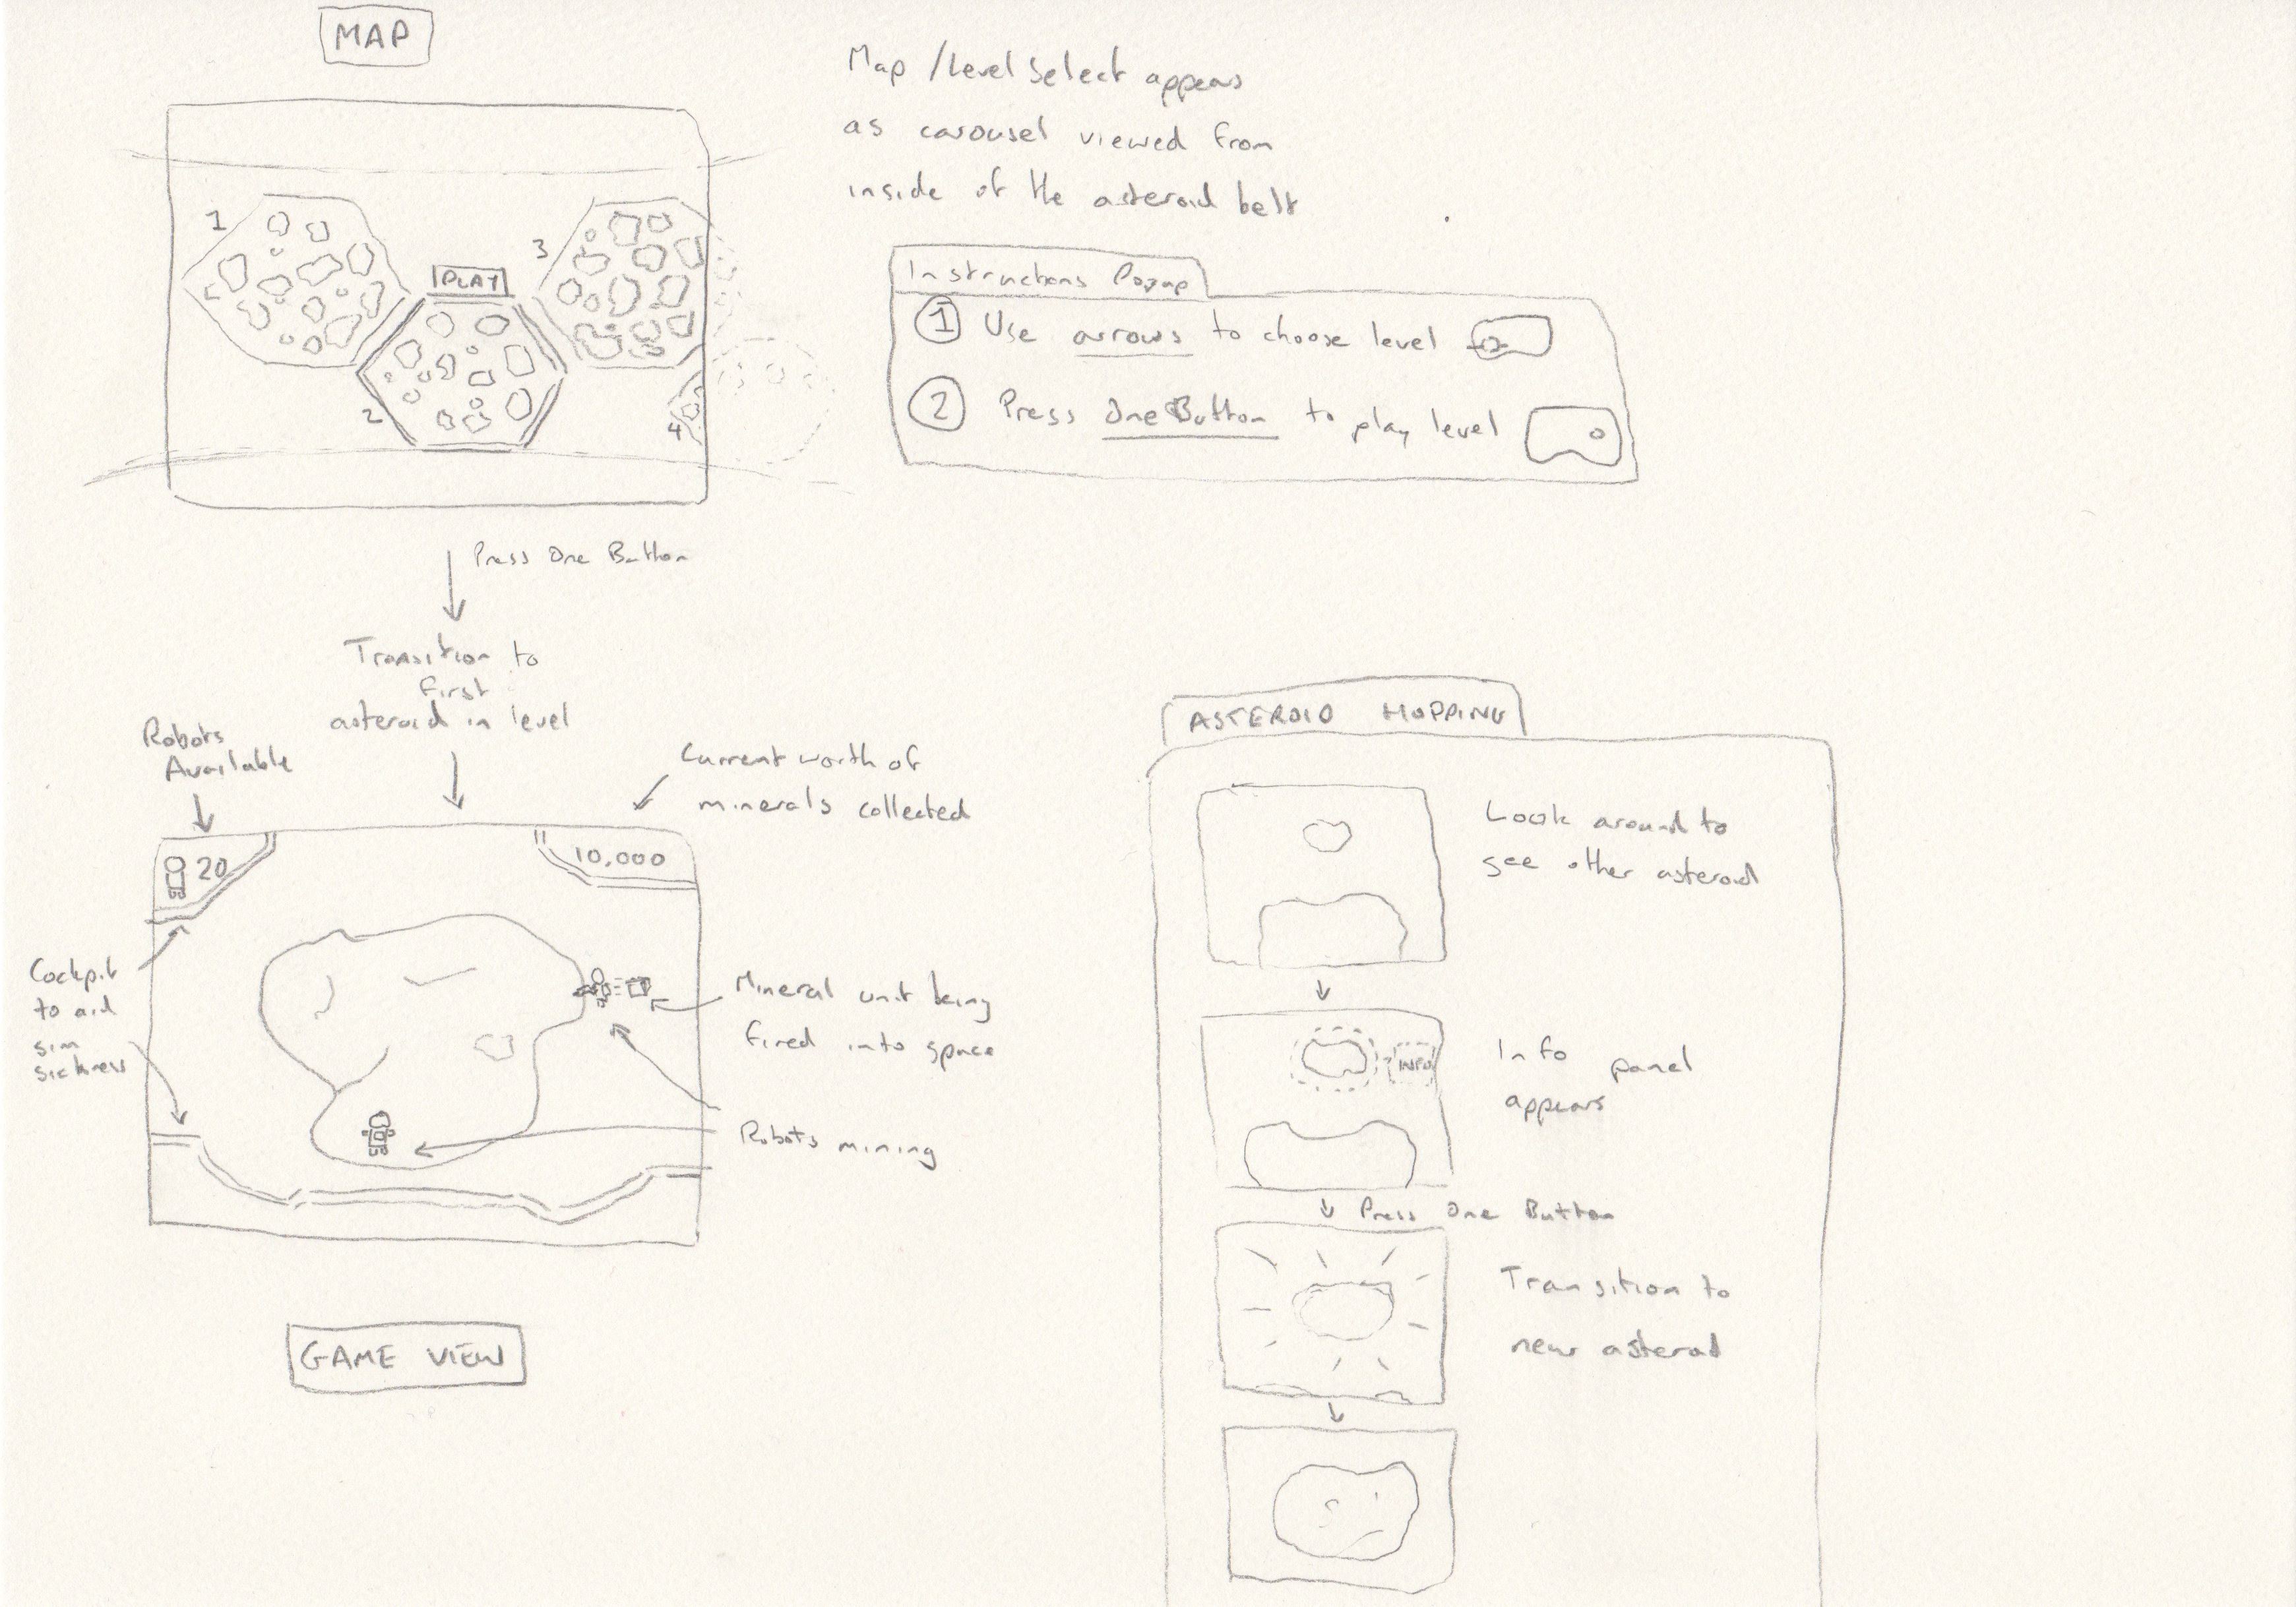 MAP
Map / Level Select appears
as carousel viewed from
inside of the asteroid belt
1
3
PLAY
2
4
Instructions Popup
1 Use arrows to choose level
2 Press One Button to play level
Press One Button
Transition to
first
asteroid in level
Robots
Available
Current worth of
minerals collected
20
10,000
Cockpit
to aid
sim
sickness
Mineral unit being
fired into space
Robots mining
GAME VIEW
ASTEROID HOPPING
Look around to
see other asteroid
INFO
Info panel
appears
Press One Button
Transition to
new asteroid